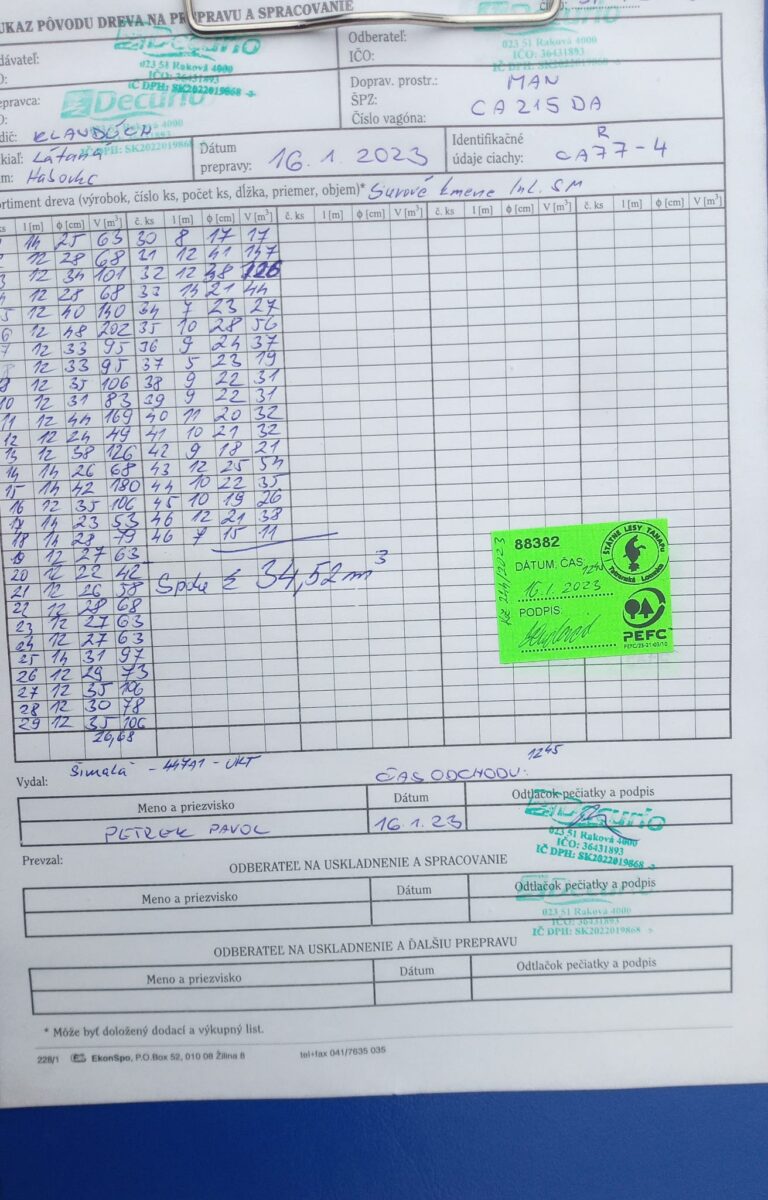 UKAZ PÔVODU DREVA NA PREPRAVU A SPRACOVANIE
dávateľ:
Decurio
023 51 Raková 4000
IČO: 36431893
IČ DPH: SK2022019868
Odberateľ:
IČO:
023 51 Raková 4000
epravca:
Decurio
Doprav. prostr.: MAN
ŠPZ: CA 215 DA
Číslo vagóna:
dič: KLANDUCH
kiaľ: Látaná
m: Habovka
Dátum
prepravy: 16.1.2023
Identifikačné
údaje ciachy: R CA77-4
ortiment dreva (výrobok, číslo ks, počet ks, dĺžka, priemer, objem)* Surové kmene Ihl. SM
ks l [m] ϕ [cm] V [m³] č. ks l [m] ϕ [cm] V [m³] č. ks l [m] ϕ [cm] V [m³] č. ks l [m] ϕ [cm] V [m³] č. ks l [m] ϕ [cm] V [m³]
14 25 63 30 8 17 17
12 28 68 31 12 41 147
3 12 34 101 32 12 38 126
4 12 28 68 33 14 21 44
5 12 40 140 34 7 23 27
6 12 48 202 35 10 28 56
7 12 33 95 36 9 24 37
8 12 33 95 37 5 23 19
12 35 106 38 9 22 31
10 12 31 83 39 9 22 31
11 12 44 169 40 11 20 32
12 12 24 49 41 10 21 32
13 12 38 126 42 9 18 21
14 14 26 68 43 12 25 54
15 14 42 180 44 10 22 35
16 12 35 106 45 10 19 26
17 14 23 53 46 12 21 38
18 14 28 79 46 7 15 11
19 12 27 63
20 12 22 42
21 12 26 58
Spolu Σ 34,52 m³
22 12 28 68
23 12 27 63
24 12 27 63
25 14 31 97
26 12 29 73
27 12 35 106
28 12 30 78
29 12 35 106
26,68
88382
DÁTUM, ČAS: 1240
16.1.2023
PODPIS:
ŠTÁTNE LESY TANAPU
Tatranská Lomnica
PEFC
PEFC/23-21-03/10
Šimalá - 447A1 - VKT
ČAS ODCHODU: 1245
Vydal:
Meno a priezvisko Dátum Odtlačok pečiatky a podpis
PETREK PAVOL 16.1.23
Decurio
023 51 Raková 4000
IČO: 36431893
IČ DPH: SK2022019868
Prevzal:
ODBERATEĽ NA USKLADNENIE A SPRACOVANIE
Meno a priezvisko Dátum Odtlačok pečiatky a podpis
023 51 Raková 4000
IČO: 36431893
IČ DPH: SK2022019868
ODBERATEĽ NA USKLADNENIE A ĎALŠIU PREPRAVU
Meno a priezvisko Dátum Odtlačok pečiatky a podpis
* Môže byť doložený dodací a výkupný list.
228/1 EkonSpo, P.O.Box 52, 010 08 Žilina 8 tel+fax 041/7635 035